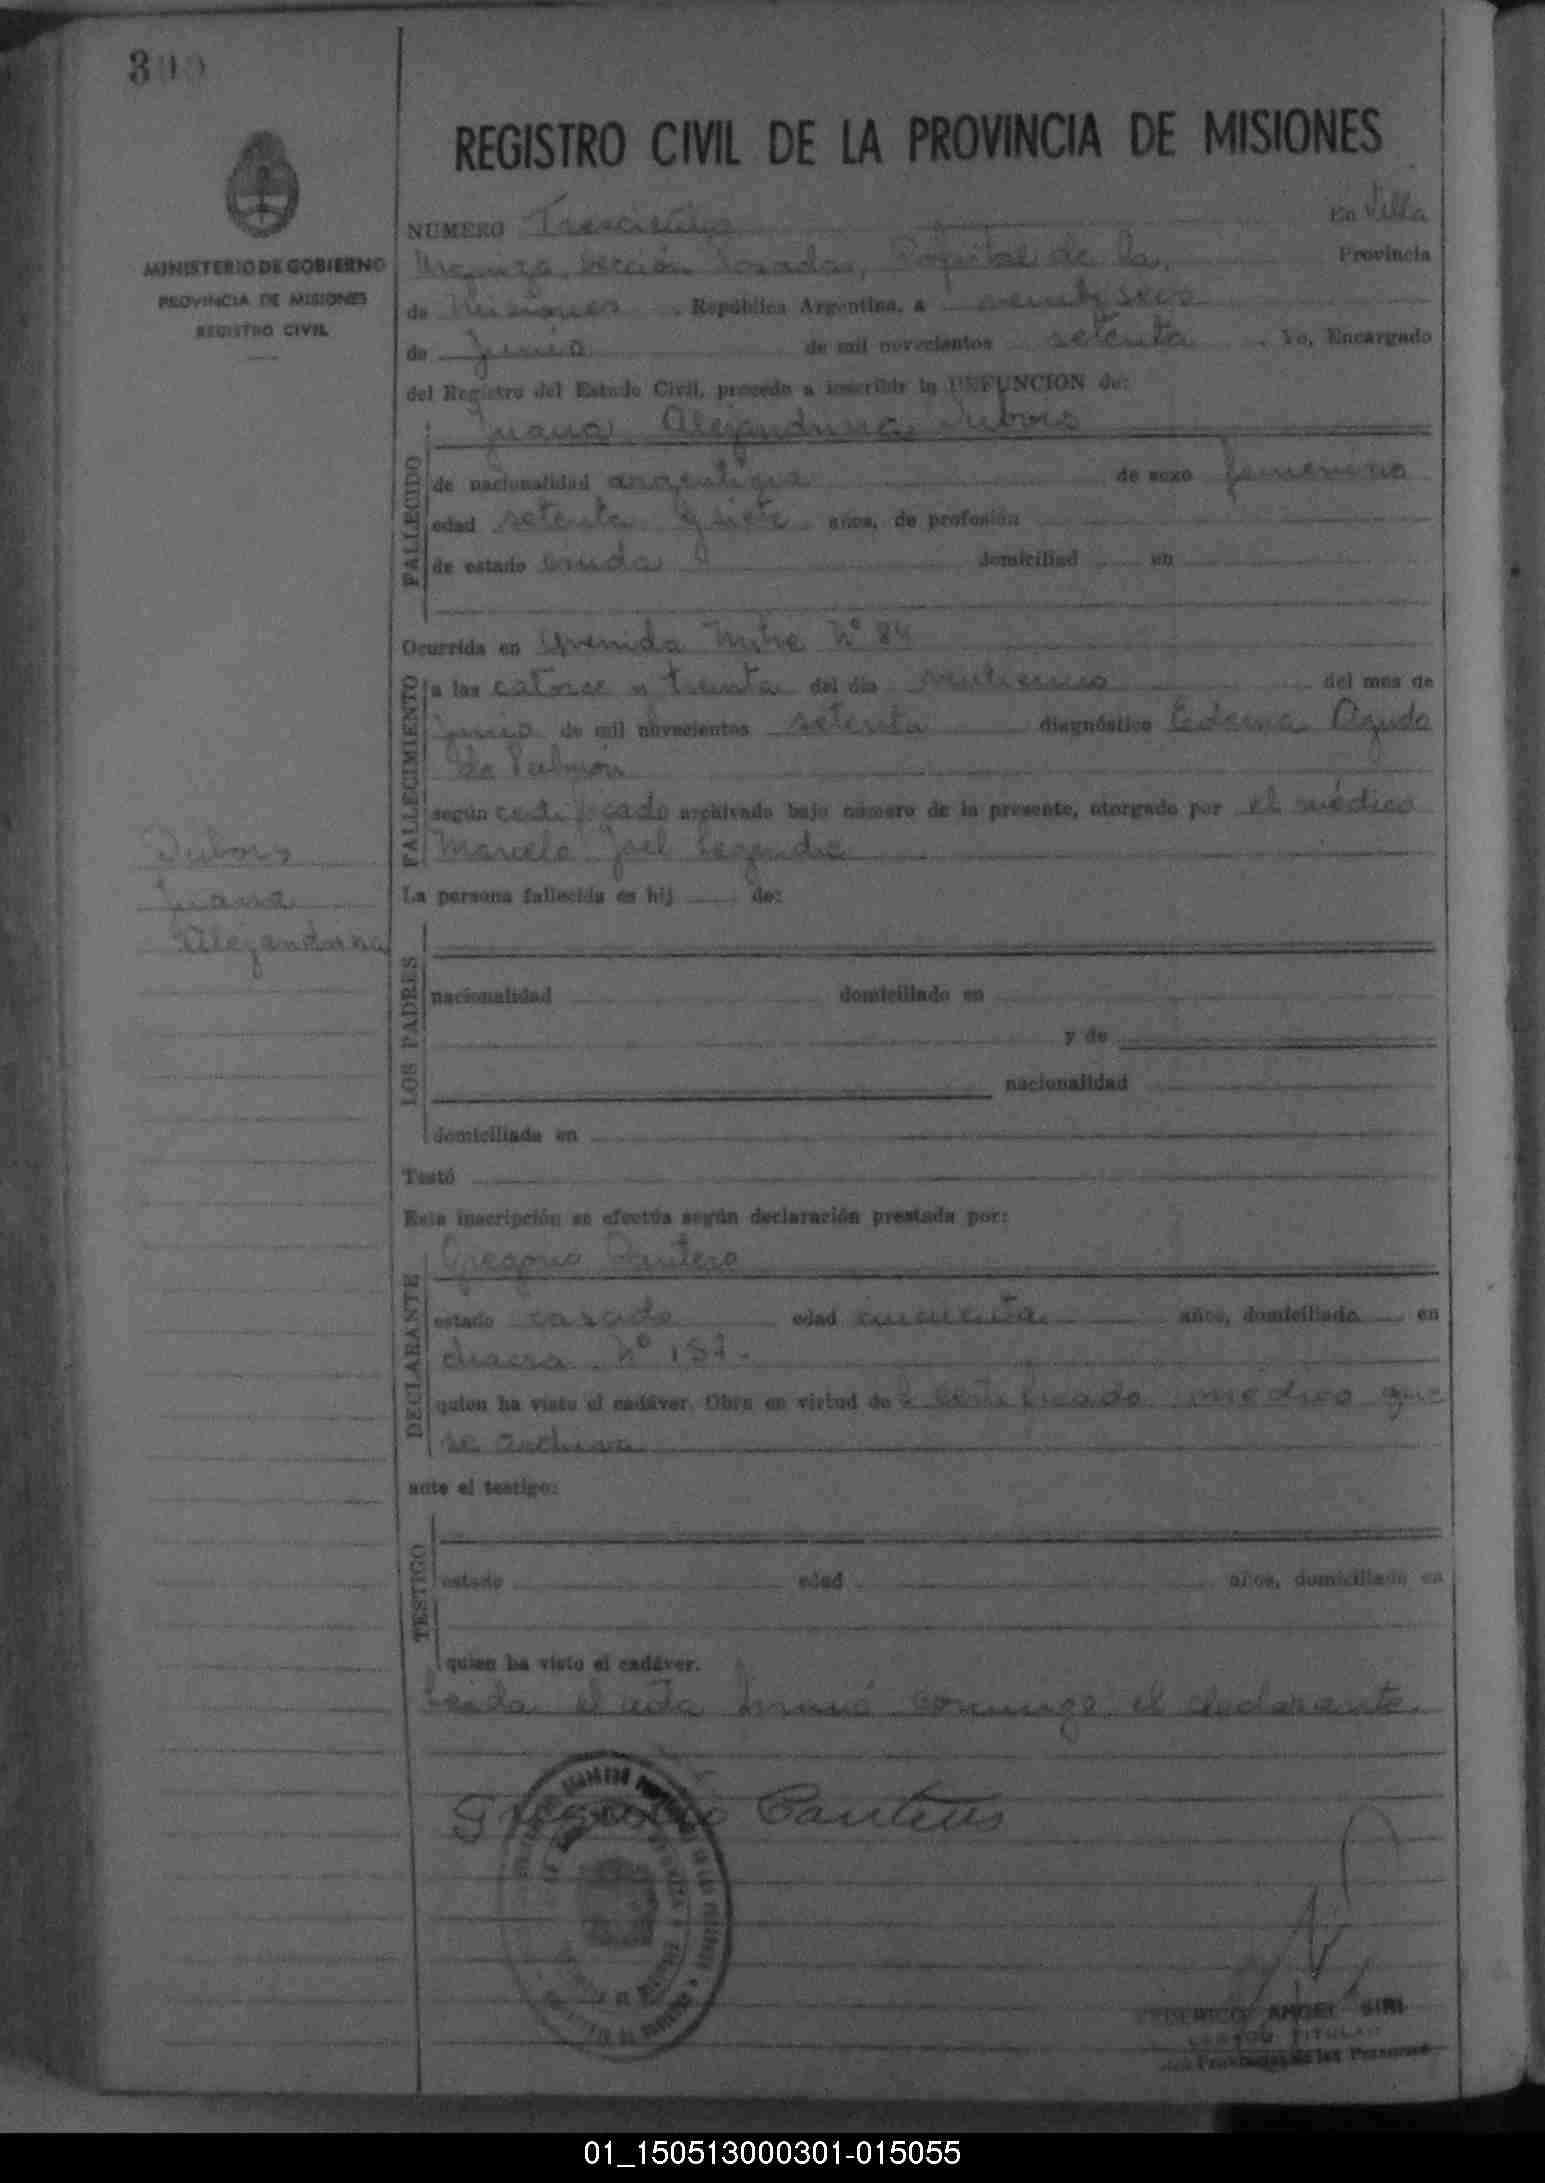 300
REGISTRO CIVIL DE LA PROVINCIA DE MISIONES
MINISTERIO DE GOBIERNO
PROVINCIA DE MISIONES
REGISTRO CIVIL
NUMERO Trescientos En Villa
Urquiza, Sección Posadas, Capital de la Provincia
de Misiones, República Argentina, a veintiseis
de Junio de mil novecientos setenta. Yo, Encargado
del Registro del Estado Civil, procedo a inscribir la DEFUNCION de:
Juana Alejandrina Dubois
FALLECIDO
de nacionalidad argentina de sexo femenino
edad setenta y siete años, de profesión
de estado viuda domiciliad en
Ocurrida en Avenida Mitre Nº 84
FALLECIMIENTO
a las catorce y treinta del día veintiuno del mes de
Junio de mil novecientos setenta diagnóstico Edema Agudo
de Pulmón
según certificado archivado bajo número de la presente, otorgado por el médico
Marcelo Joel
Dubois
Juana
Alejandrina
La persona fallecida es hij de:
LOS PADRES
nacionalidad domiciliado en
y de
nacionalidad
domiciliada en
Testó
Esta inscripción se efectúa según declaración prestada por:
DECLARANTE
Gregorio
estado casado edad cincuenta años, domiciliado en
chacra Nº
quien ha visto el cadáver. Obra en virtud de certificado médico que
se archiva
ante el testigo:
TESTIGO
estado edad años, domiciliado en
quien ha visto el cadáver.
Leida el acta firmó conmigo el declarante.
Gregorio
FEDERICO ANGEL SIRI
TITULAR
de las Personas
01_150513000301-015055